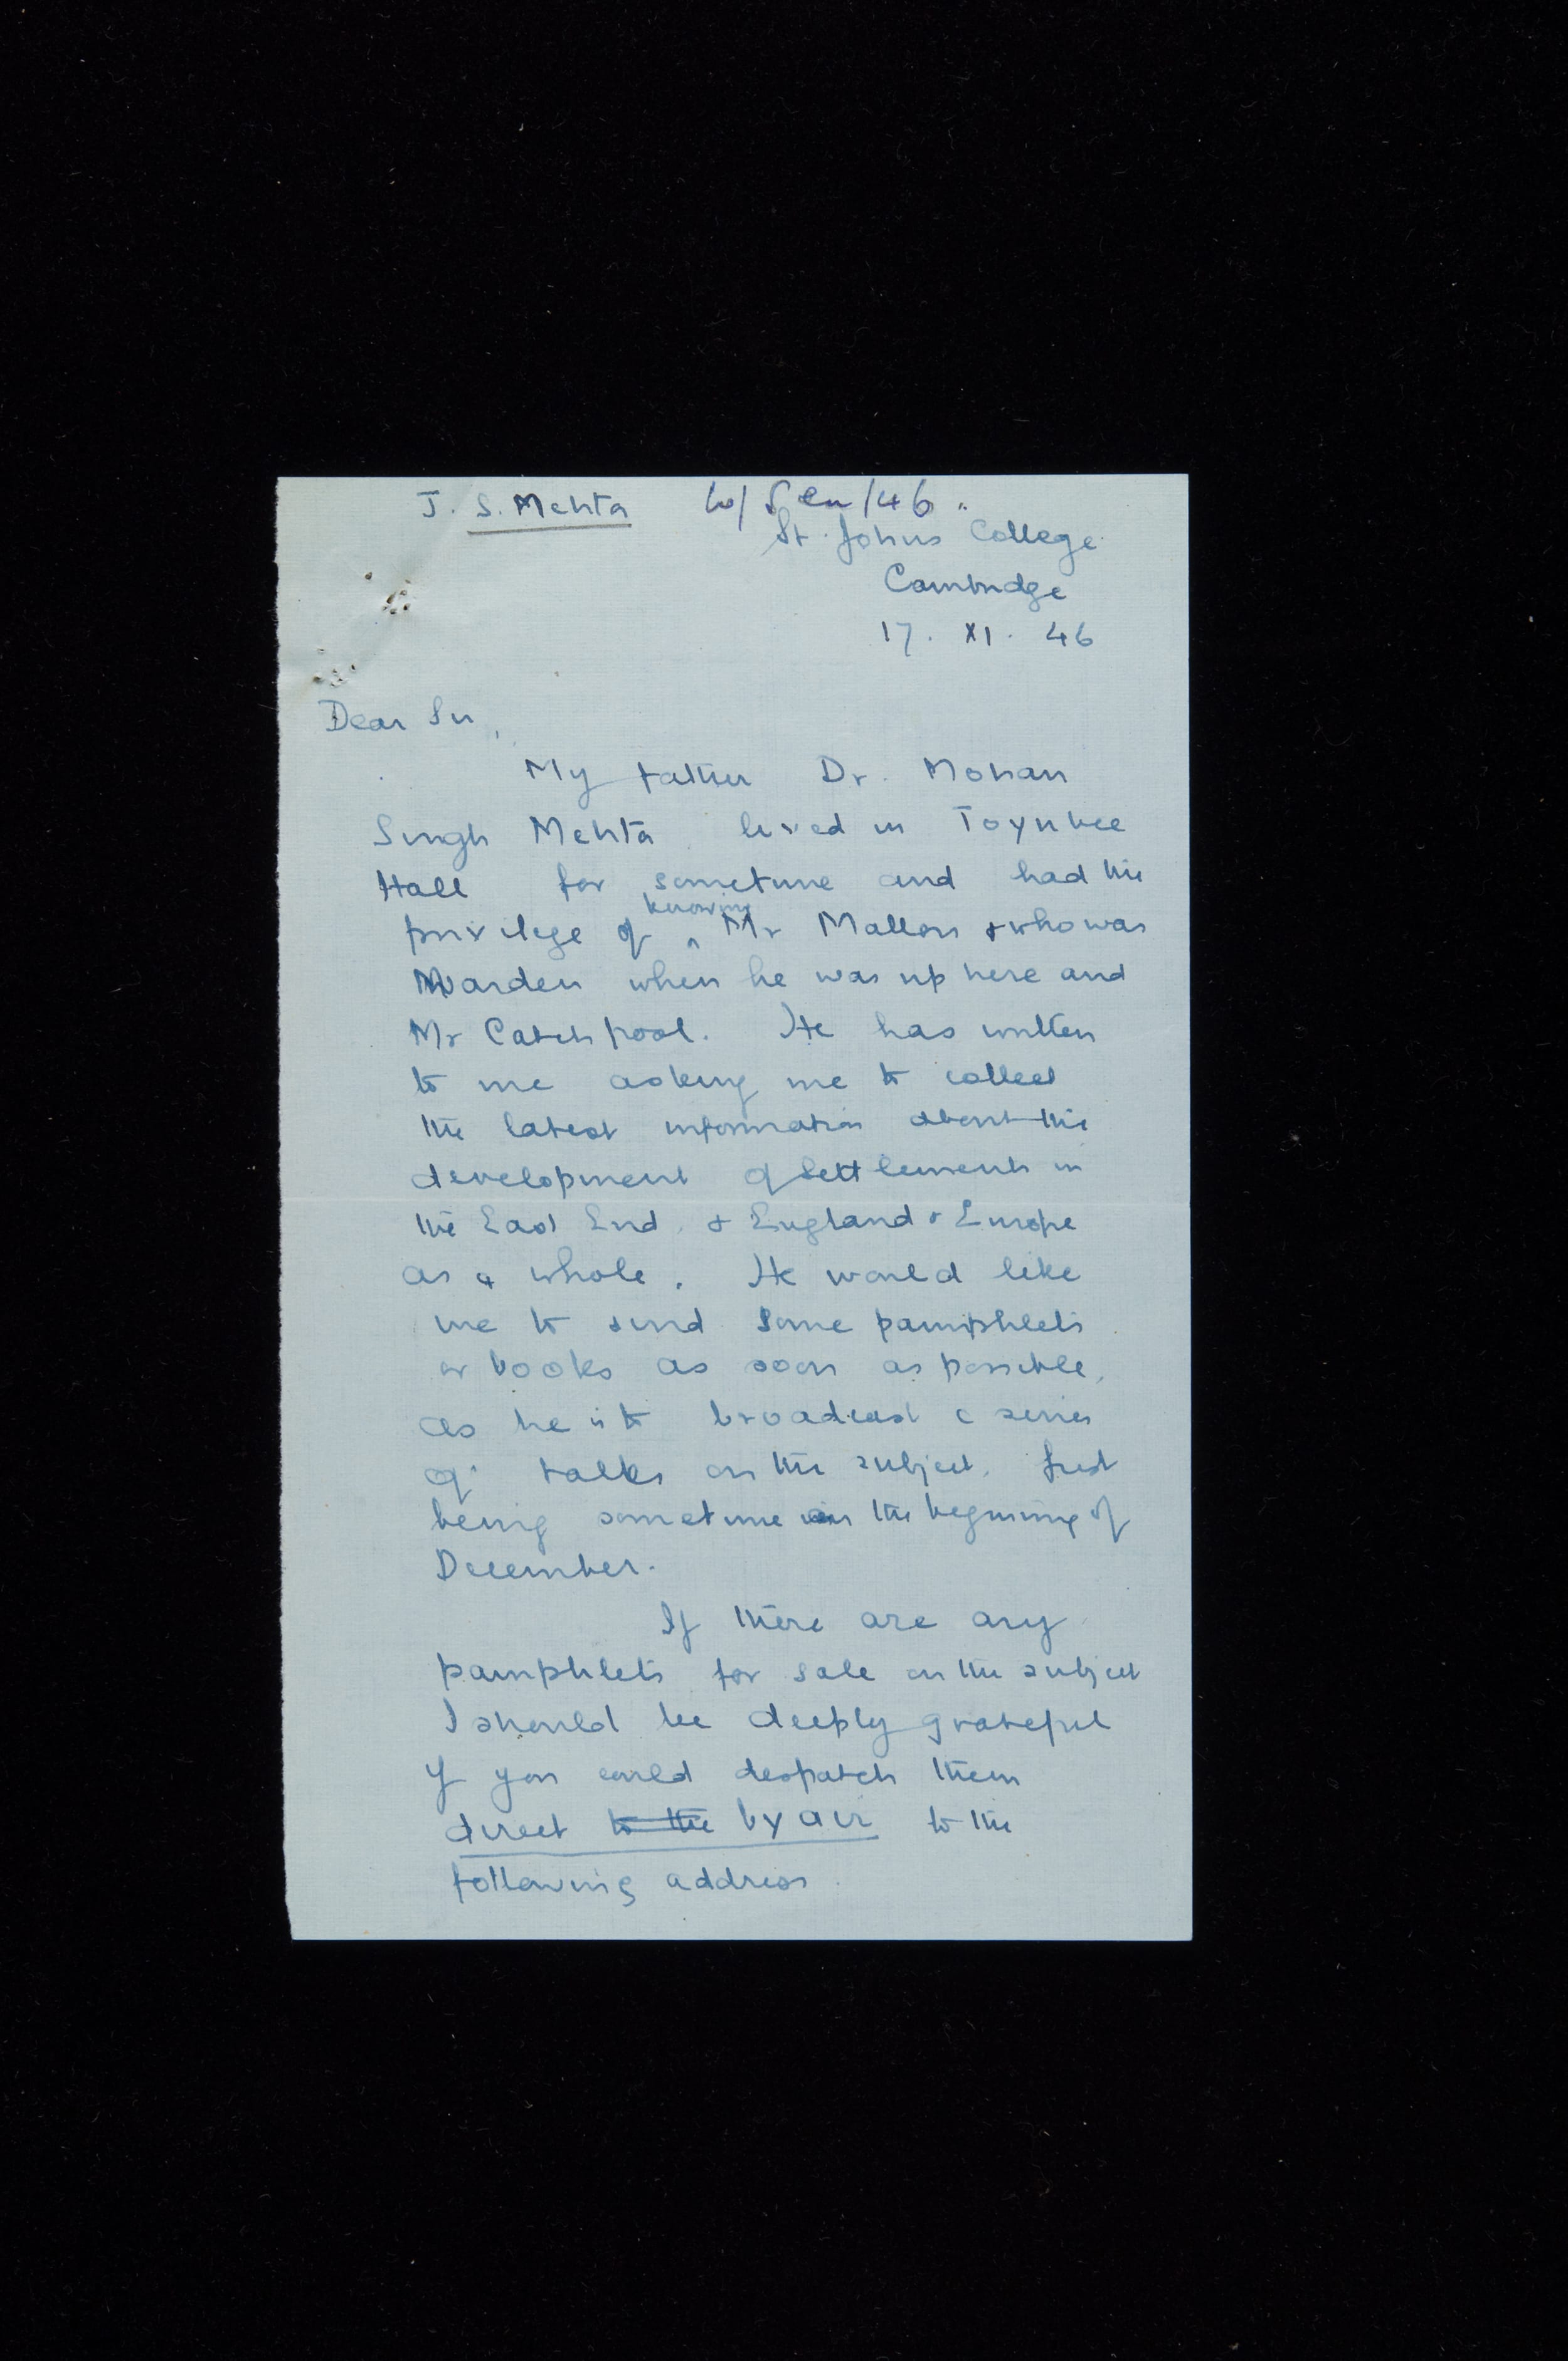 J. S. Mehta W/Gen/46.
St. Johns College
Cambridge
17. XI. 46
Dear Sir,
My father Dr. Mohan
Singh Mehta lived in Toynbee
Hall for sometime and had the
knowing
privilege of ^ Mr Mallon & who was
Warden when he was up here and
Mr Catchpool. He has written
to me asking me to collect
the latest information about the
development of Settlements in
the East End & England & Europe
as a whole. He would like
me to send some pamphlets
or books as soon as possible,
as he is to broadcast a series
of talks on the subject, first
being sometime in the beginning of
December.
If there are any
pamphlets for sale on the subject
I should be deeply grateful
if you could despatch them
direct to the by air to the
following address